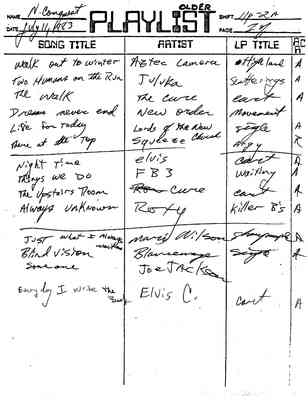 OLDER
NAME N. Conquest PLAYLIST SHIFT 11p-2A
DATE July 14, 1983 PAGE 24
SONG TITLE ARTIST LP TITLE
walk out to winter Aztec Camera Highland A
Two Humans on the Run Juluka Scatterlings A
The walk The cure cart A
Dreams never end New order Movement
Life for today Lords of the New Church single A
There at the Top Squeeze Argy R
Night Time elvis cart A
Things we Do FB3 waiting A
The Upstairs Room Cure cart A
Always Unknown Roxy Killer B's A
Just what I always wanted Mari Wilson Showpeople A
Blind Vision Blancmange single A
Someone Joe Jackson
Everyday I Write the Book Elvis C. cart A